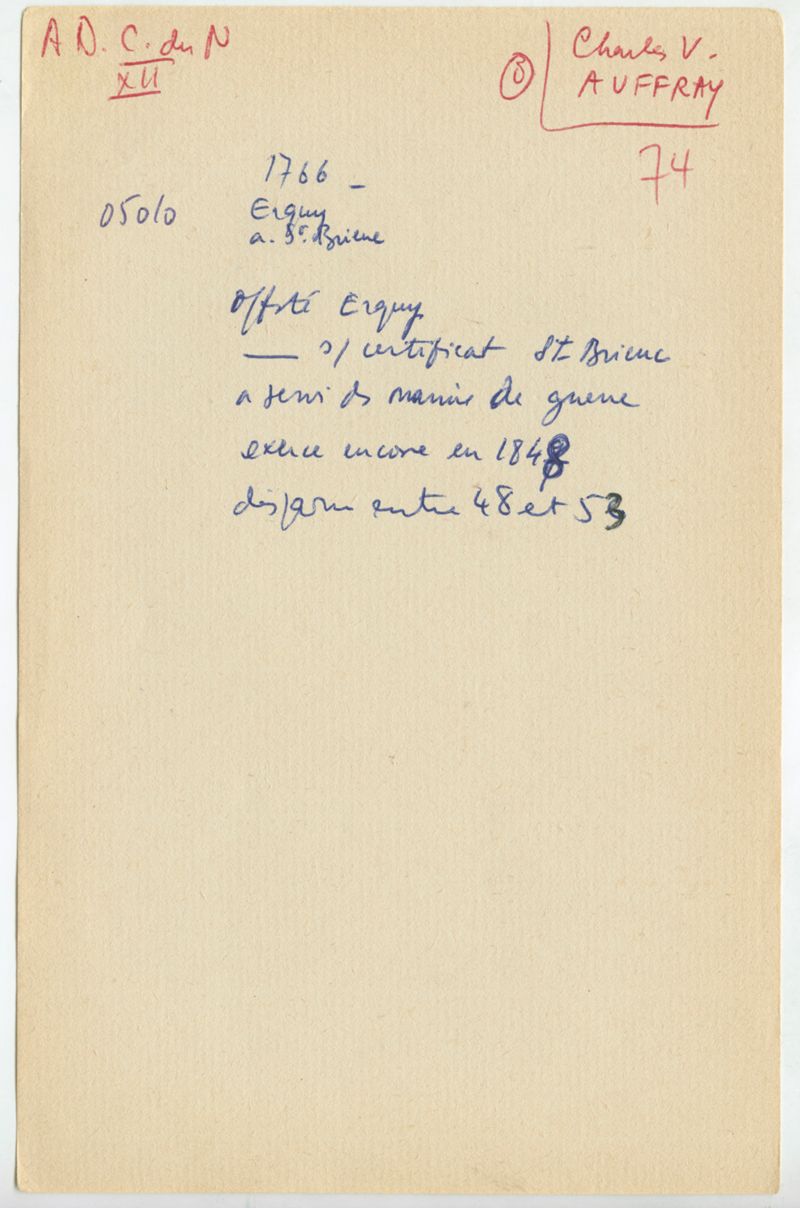 A D. C. du N
XII
③ Charles V.
AUFFRAY
74
1766 –
05010
Erquy
a. St. Brieuc
Offté Erquy
— s/ certificat St Brieuc
a servi ds marine de guerre
exerce encore en 1848
disparu entre 48 et 53